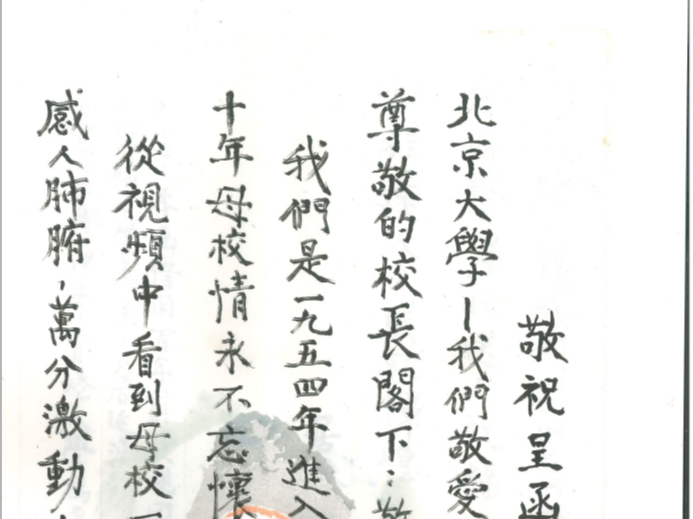 敬祝呈函
北京大學—我們敬愛
尊敬的校長閣下:敬
我們是一九五四年進入
十年母校情永不忘懷
從視頻中看到母校
感人肺腑,萬分激動,